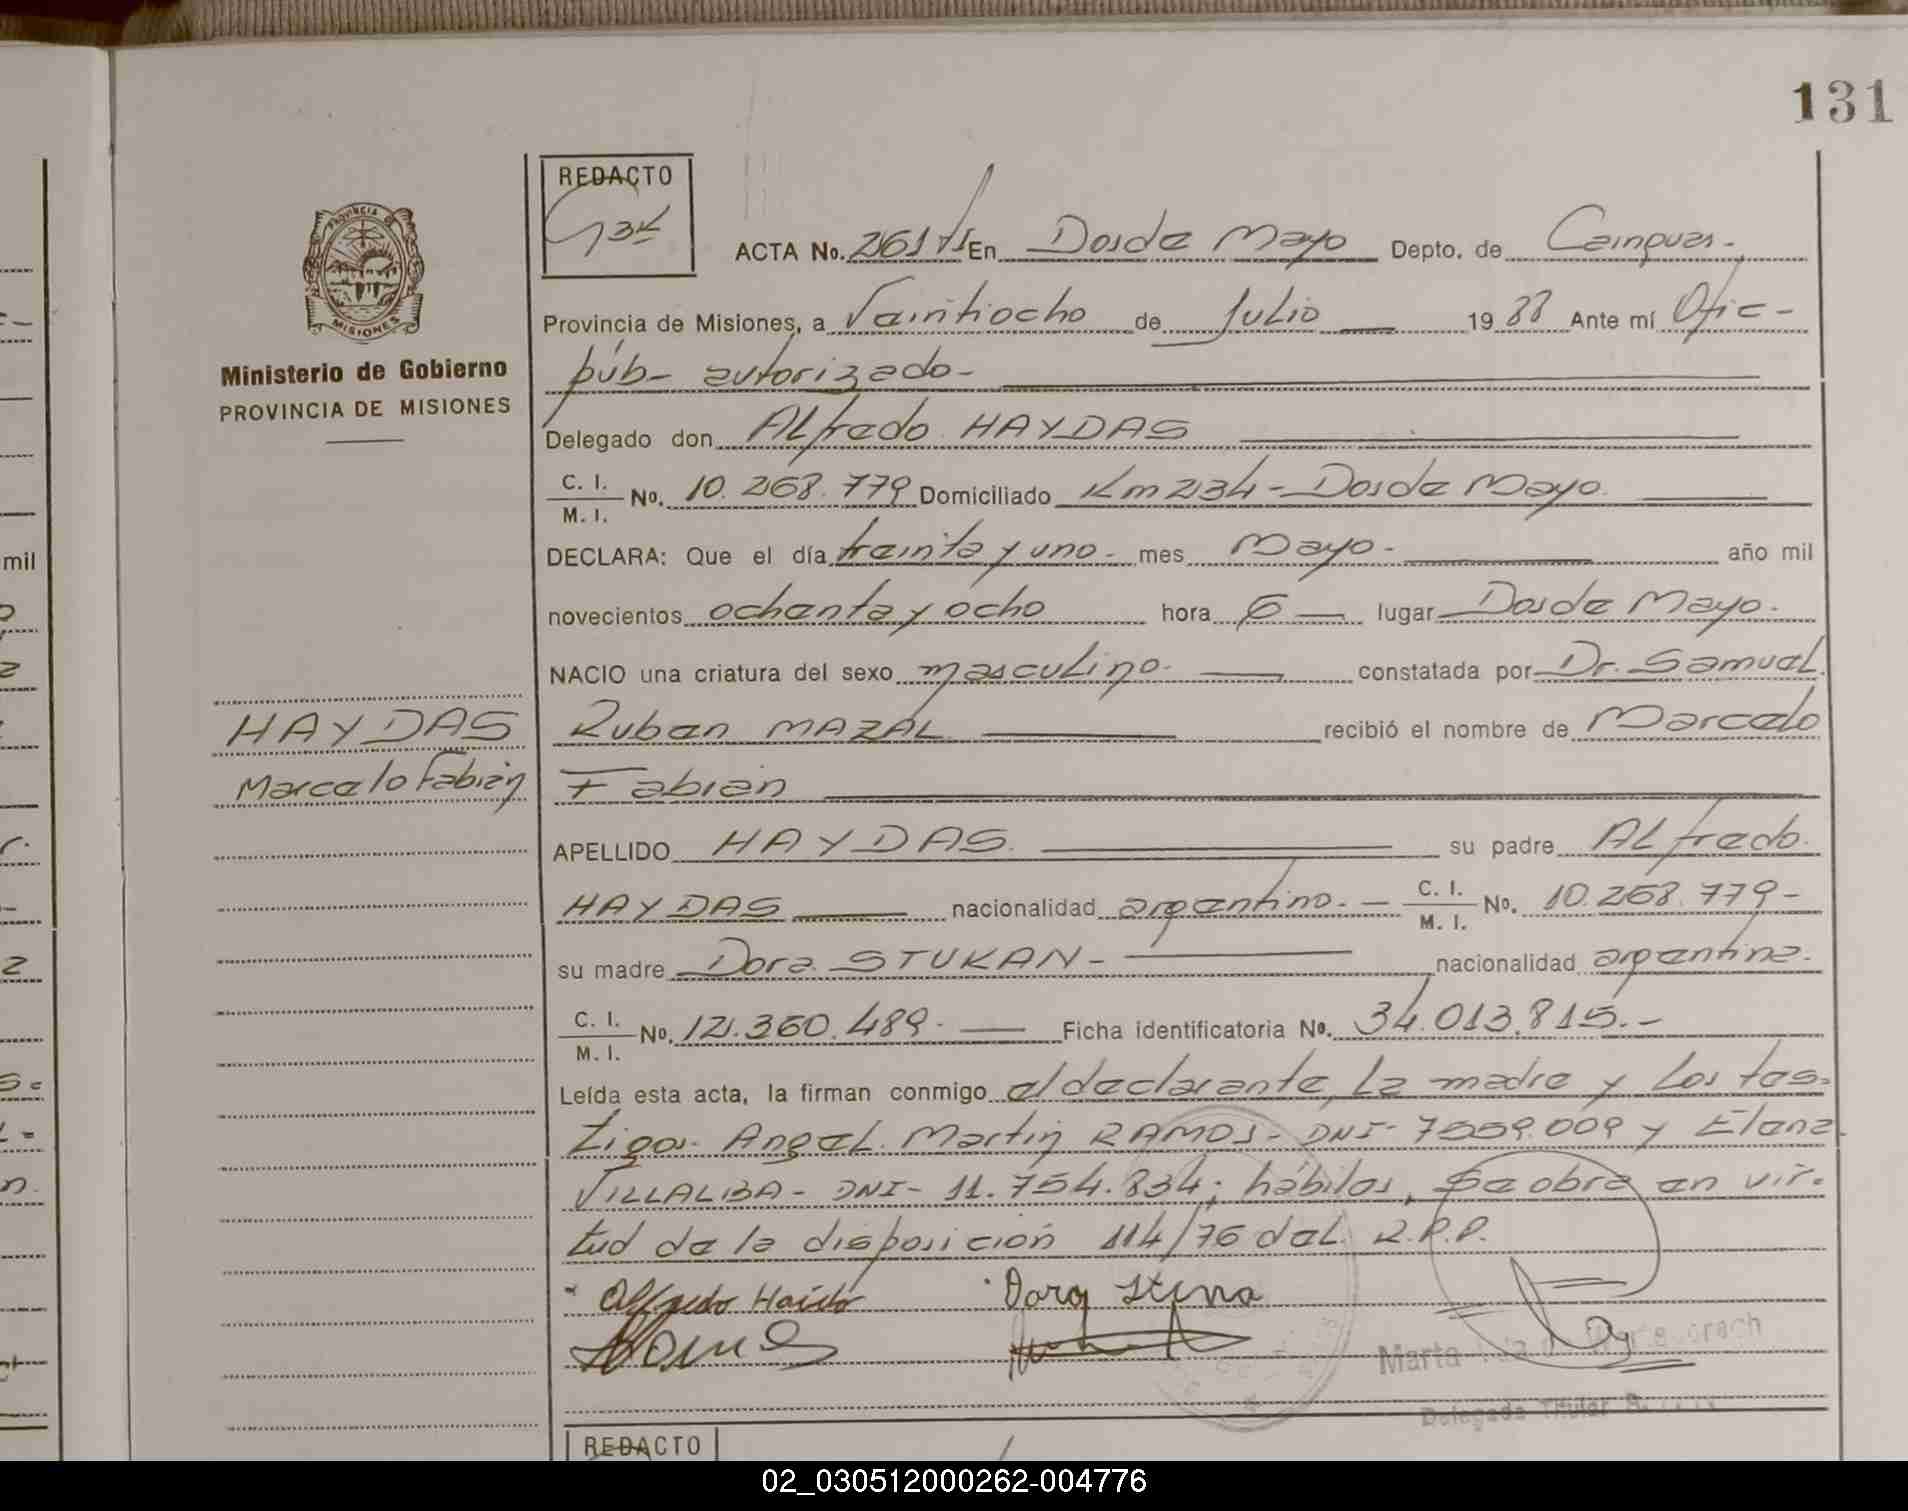 131
REDACTO
PROVINCIA DE
MISIONES
ACTA No. 261 T1 En Dos de Mayo Depto. de Cainguas.
Provincia de Misiones, a Veintiocho de Julio 1988 Ante mí Ofic-
Ministerio de Gobierno
PROVINCIA DE MISIONES
púb- autorizado-
Delegado don Alfredo HAYDAS
C. I.
M. I. No. 10.268.779 Domiciliado Km 234 - Dos de Mayo.
DECLARA: Que el día treinta y uno- mes Mayo- año mil
novecientos ochenta y ocho hora 6 lugar Dos de Mayo.
NACIO una criatura del sexo masculino- constatada por Dr. Samuel
HAYDAS
Ruben MAZAL recibió el nombre de Marcelo
Marcelo Fabián
Fabian
APELLIDO HAYDAS. su padre Alfredo.
HAYDAS nacionalidad argentino.- C. I.
M. I. No. 10.268.779-
su madre Dora STUKAN- nacionalidad argentina.
C. I.
M. I. No. 12.360.489- Ficha identificatoria No. 34.013.815.-
Leída esta acta, la firman conmigo el declarante, la madre y los tes-
tigos- Angel Martin RAMOS- DNI- 7559.009 y Elena
VILLALBA- DNI- 11.754.834; hábiles, Se obra en vir-
tud de la disposición 114/76 del R.P.P.
Alfredo Dora
Marta
Delegada Titular
REDACTO
mil
02_030512000262-004776